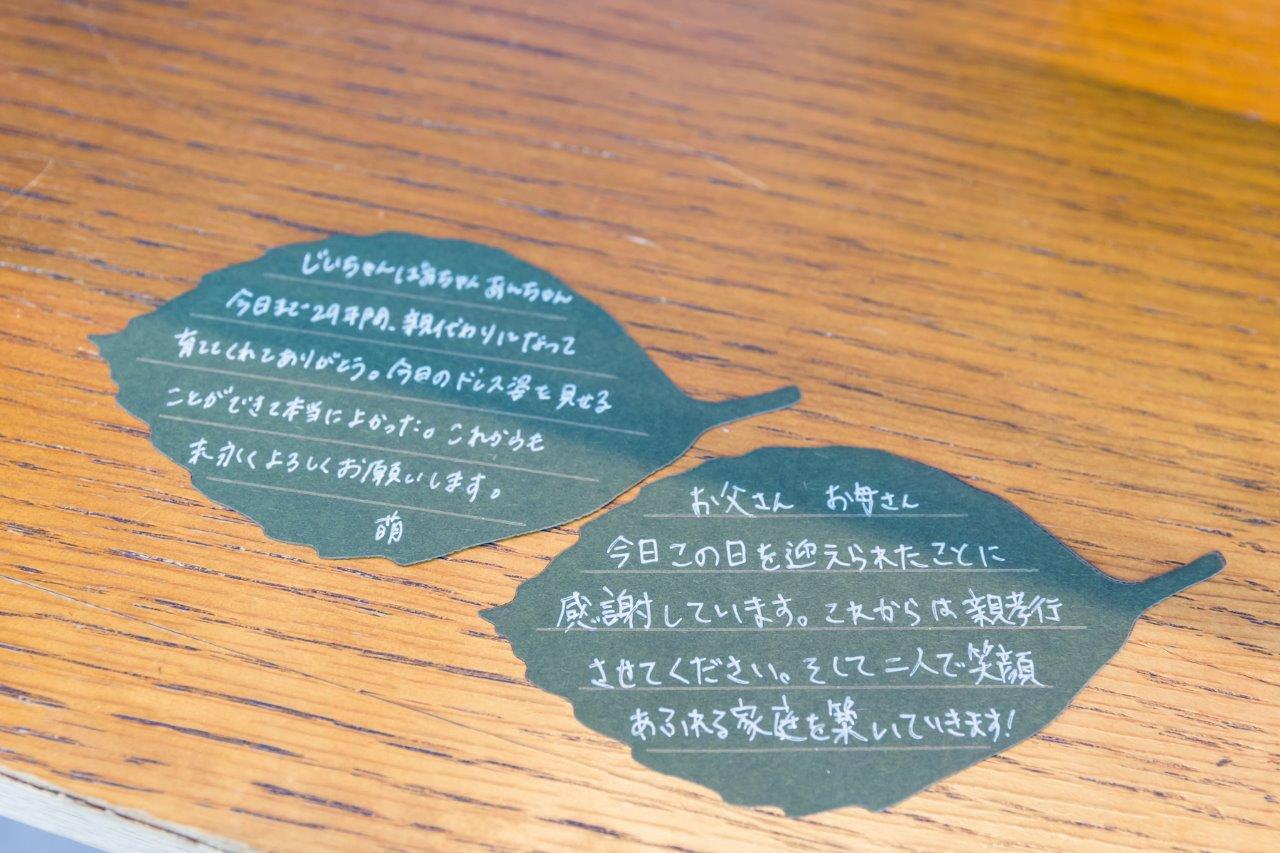 じいちゃんばあちゃん あんちゃん
今日まで29年間、親代わりになって
育ててくれてありがとう。今日のドレス姿を見せる
ことができて本当によかった。これからも
末永くよろしくお願いします。
萌
お父さん お母さん
今日この日を迎えられたことに
感謝しています。これからは親孝行
させてください。そして二人で笑顔
あふれる家庭を築いていきます!